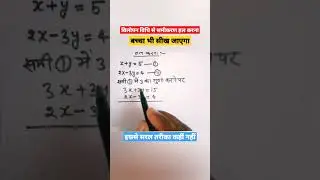 विलोपन विधि से समीकरण हल करना
बच्चा भी सीख जाएगा
x+y=5
2x-3y=4
हल करना:-
x+y=5 —①
2x-3y=4 —②
समी① में 3 का गुणा करने पर
3x+3y=15
2x-3y=4
इससे सरल तरीका कहीं नहीं